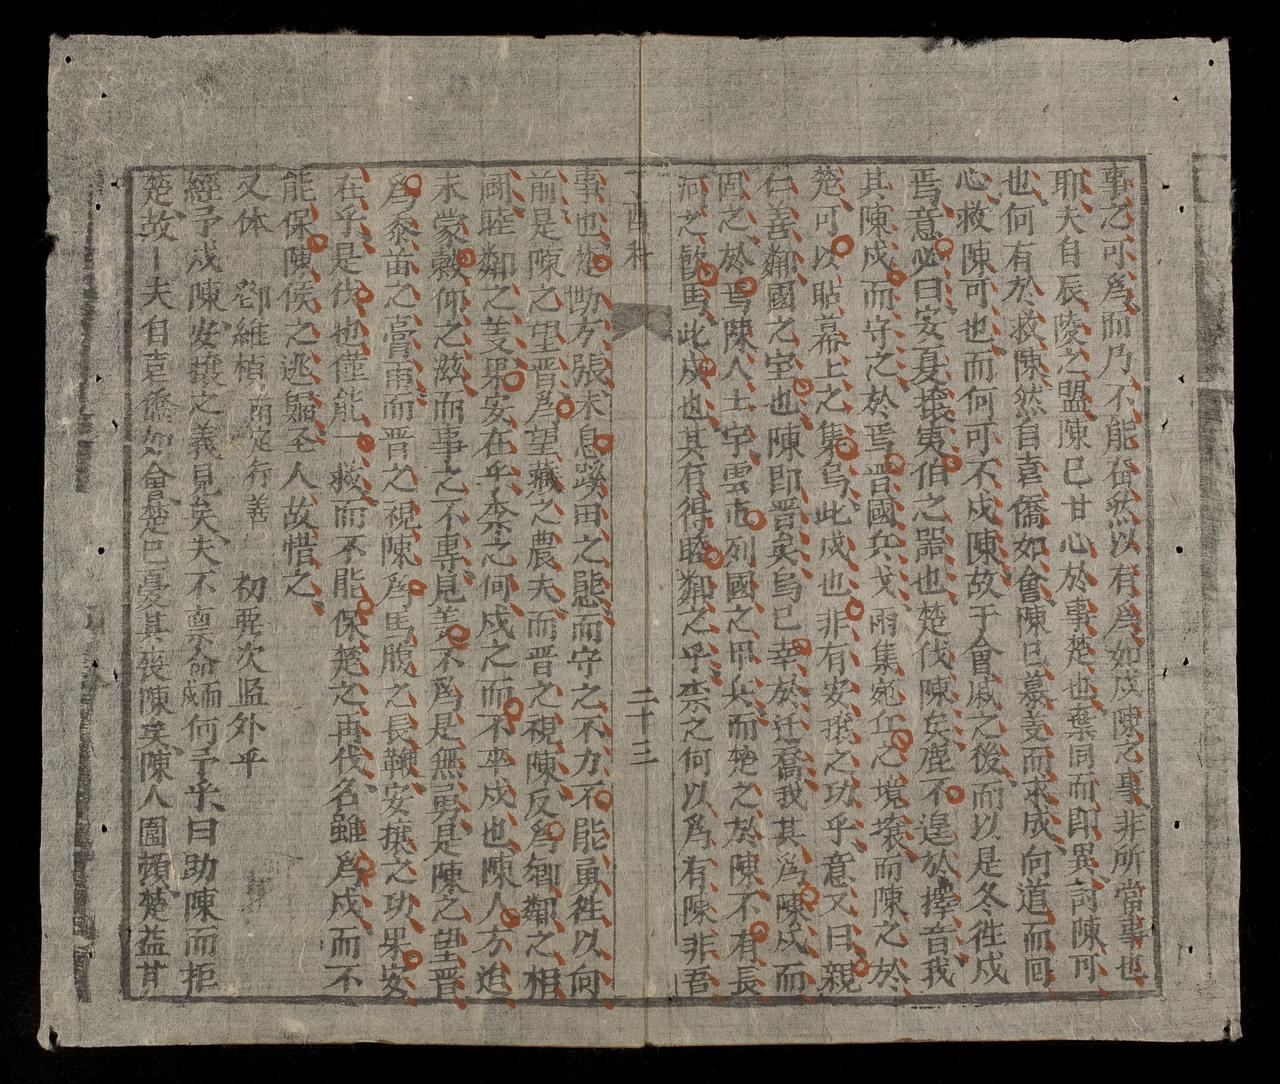 事之可爲而乃不能奋然以有爲如戍陳之事非所當事也
耶夫自辰陵之盟陳已甘心於事楚也棄同而即異討陳可
也何有於救陳然自袁僑如會陳已慕羙而求成向道而回
心救陳可也而何可不戍陳故于會戚之後而以是冬徃戍
焉意必曰安夏攘夷伯之噐也楚伐陳矣塵不遑於擇音我
其陳戍而守之於焉晋國兵戈雨集宛丘之境壌而陳之於
楚可以貽幕上之集烏此戍也非有安攘之功乎意又曰親
仁善鄰國之宝也陳即晋矣鸟已幸於迁喬我其爲陳戍而
固之於焉陳人土宇雲屯列國之甲兵而楚之於陳不有長
河之駿馬此戍也其有得睦鄰之乎柰之何以爲有陳非吾
酉科
二十三
事也楚師方張未息蹊田之態而守之不力不能勇徃以向
前是陳之望晋爲望歲之農夫而晋之視陳反爲鄉鄰之相
閧睦鄰之羙果安在乎柰之何戍之而不卒戍也陳人方迫
未蒙穀仰之滋而事之不專見羙不爲是無勇是陳之望晋
爲黍苗之膏雨而晋之視陳爲馬腹之長鞭安攘之功果安
在乎是伐也僅能一救而不能保楚之再伐名雖爲戍而不
能保陳侯之逃歸圣人故惜之
又体 鄧維楨 南定行善 初 次監外乎
經予戍陳安攘之義見矣夫不稟命而戍何予乎曰助陳而拒
楚故丨夫自袁僑如會楚已憂其喪陳矣陳人圍頓楚益甘